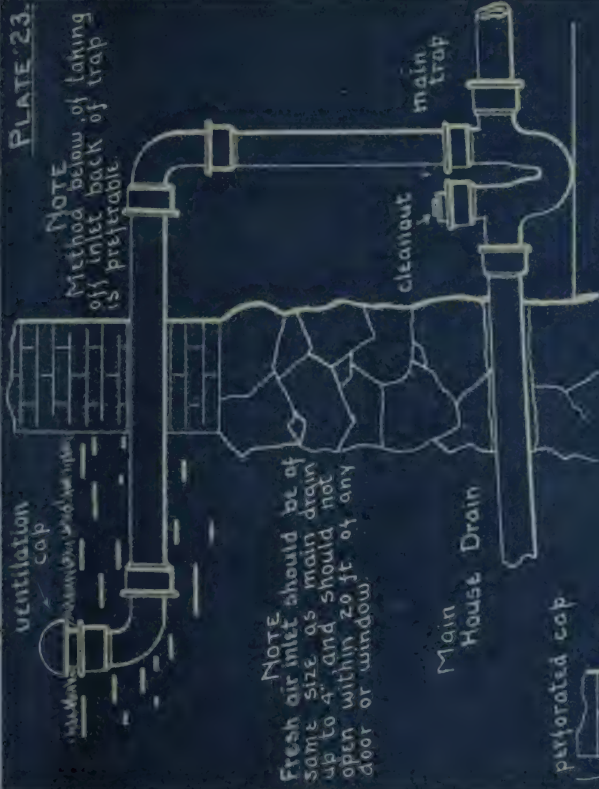 PLATE 23.
NOTE
Method below of taking
off inlet back of trap
is preferable
ventilation
cap
main
trap
cleanout
NOTE
Fresh air inlet should be of
same size as main drain
up to 4" and should not
open within 20 ft of any
door or window
Main
House Drain
perforated cap